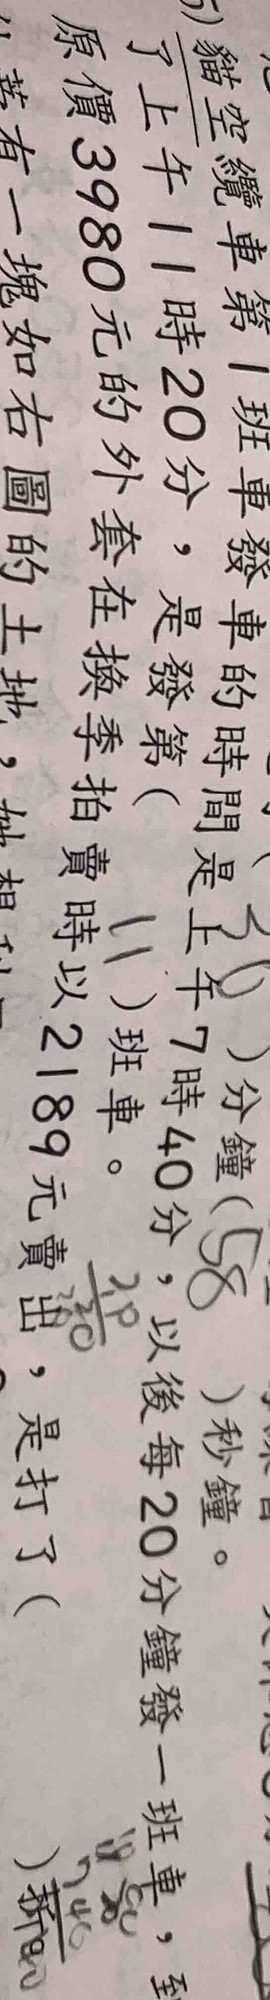 )分鐘(58)秒鐘。
5)貓空纜車第1班車發車的時間是上午7時40分，以後每20分鐘發一班車，到
了上午11時20分，是發第(11)班車。
原價3980元的外套在換季拍賣時以2189元賣出，是打了(
)折
有一塊如右圖的土地，她想利